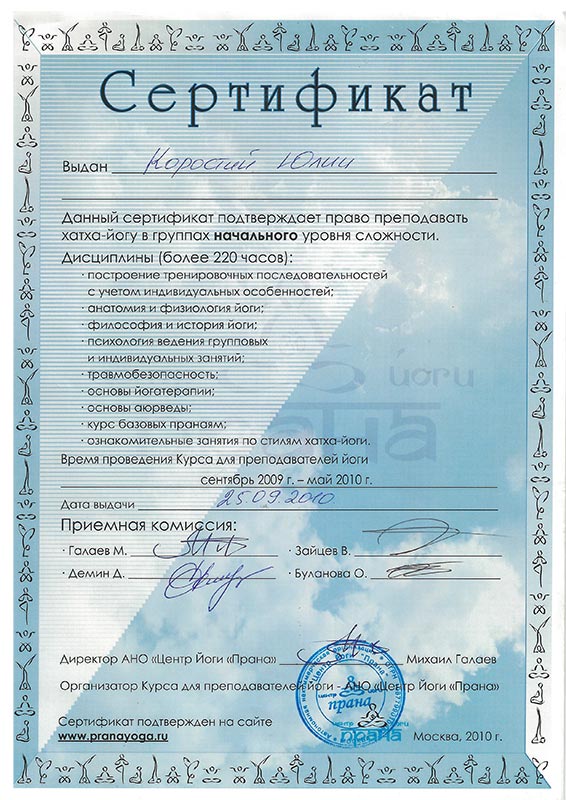 Сертификат
Выдан Коростий Юлии
Данный сертификат подтверждает право преподавать
хатха-йогу в группах начального уровня сложности.
Дисциплины (более 220 часов):
· построение тренировочных последовательностей
с учетом индивидуальных особенностей;
· анатомия и физиология йоги;
· философия и история йоги;
· психология ведения групповых
и индивидуальных занятий;
· травмобезопасность;
· основы йогатерапии;
· основы аюрведы;
· курс базовых пранаям;
· ознакомительные занятия по стилям хатха-йоги.
Время проведения Курса для преподавателей йоги
сентябрь 2009 г. – май 2010 г.
Дата выдачи 25.09.2010
Приемная комиссия:
· Галаев М. · Зайцев В.
· Демин Д. · Буланова О.
Директор АНО «Центр Йоги «Прана» Михаил Галаев
Организатор Курса для преподавателей йоги - АНО «Центр Йоги «Прана»
Сертификат подтвержден на сайте
www.pranayoga.ru Москва, 2010 г.
центр
прана
центр йоги
прана